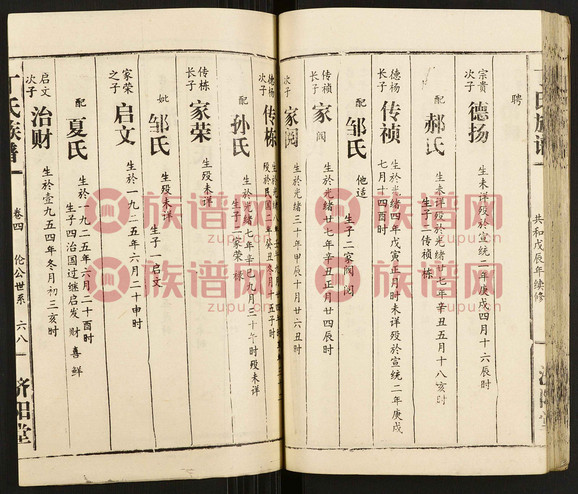 丁氏族谱
共和戊辰年续修
聘
宗贵次子 德扬 生未详殁於宣统二年庚戌四月十六辰时
配 郝氏 生未详殁於光绪廿七年辛丑五月十八亥时
生子二传祯 栋
德杨长子 传祯 生於光绪四年戊寅正月时未详殁於宣统二年庚戌
七月十四酉时
配 邹氏 他适 生子二家阅 阅
传祯长子 家阅 生於光绪廿七年辛丑正月廿四辰时
次子 家阅 生於光绪三十年甲辰十月廿六丑时
德杨次子 传栋
配 孙氏 生於光绪七年辛巳九月三十午时殁未详
生子二家荣 栋
传栋长子 家荣 生殁未详
妣 邹氏 生殁未详 生子一启文
家荣之子 启文 生於一九二五年六月二十申时
配 夏氏 生於一九二五年六月二十酉时
生子四治国过继启发 财 喜 鲜
启文次子 治财 生於壹九五四年冬月初三亥时
丁氏族谱 卷四 伦公世系 六八 济阳堂
族谱网
zupu.cn
族谱网
zupu.cn
族谱网
zupu.cn
族谱网
zupu.cn